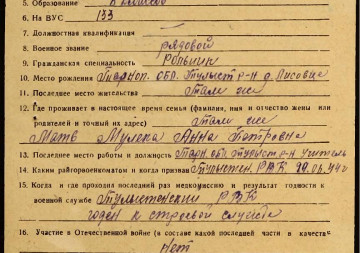 5. Образование
6. На ВУС 133
7. Должностная квалификация
8. Военное звание рядовой
9. Гражданская специальность
10. Место рождения Тарноп. обл. Тулыст р-н д. Лисовце
11. Последнее место жительства Там же
12. Где проживает в настоящее время семья (фамилия, имя и отчество жены или
родителей и точный их адрес) Там же
Мать Мулека Анна Петровна
13. Последнее место работы и должность Тарн. обл. Тулыст р-н учитель
14. Каким райгорвоенкоматом и когда призван Тулыстен. РВК 29.06.44 г
15. Когда и где проходил последний раз медкомиссию и результат годности к
военной службе Тулыстенский РВК
годен к строевой службе
16. Участие в Отечественной войне (в составе какой последней части в качестве
нет